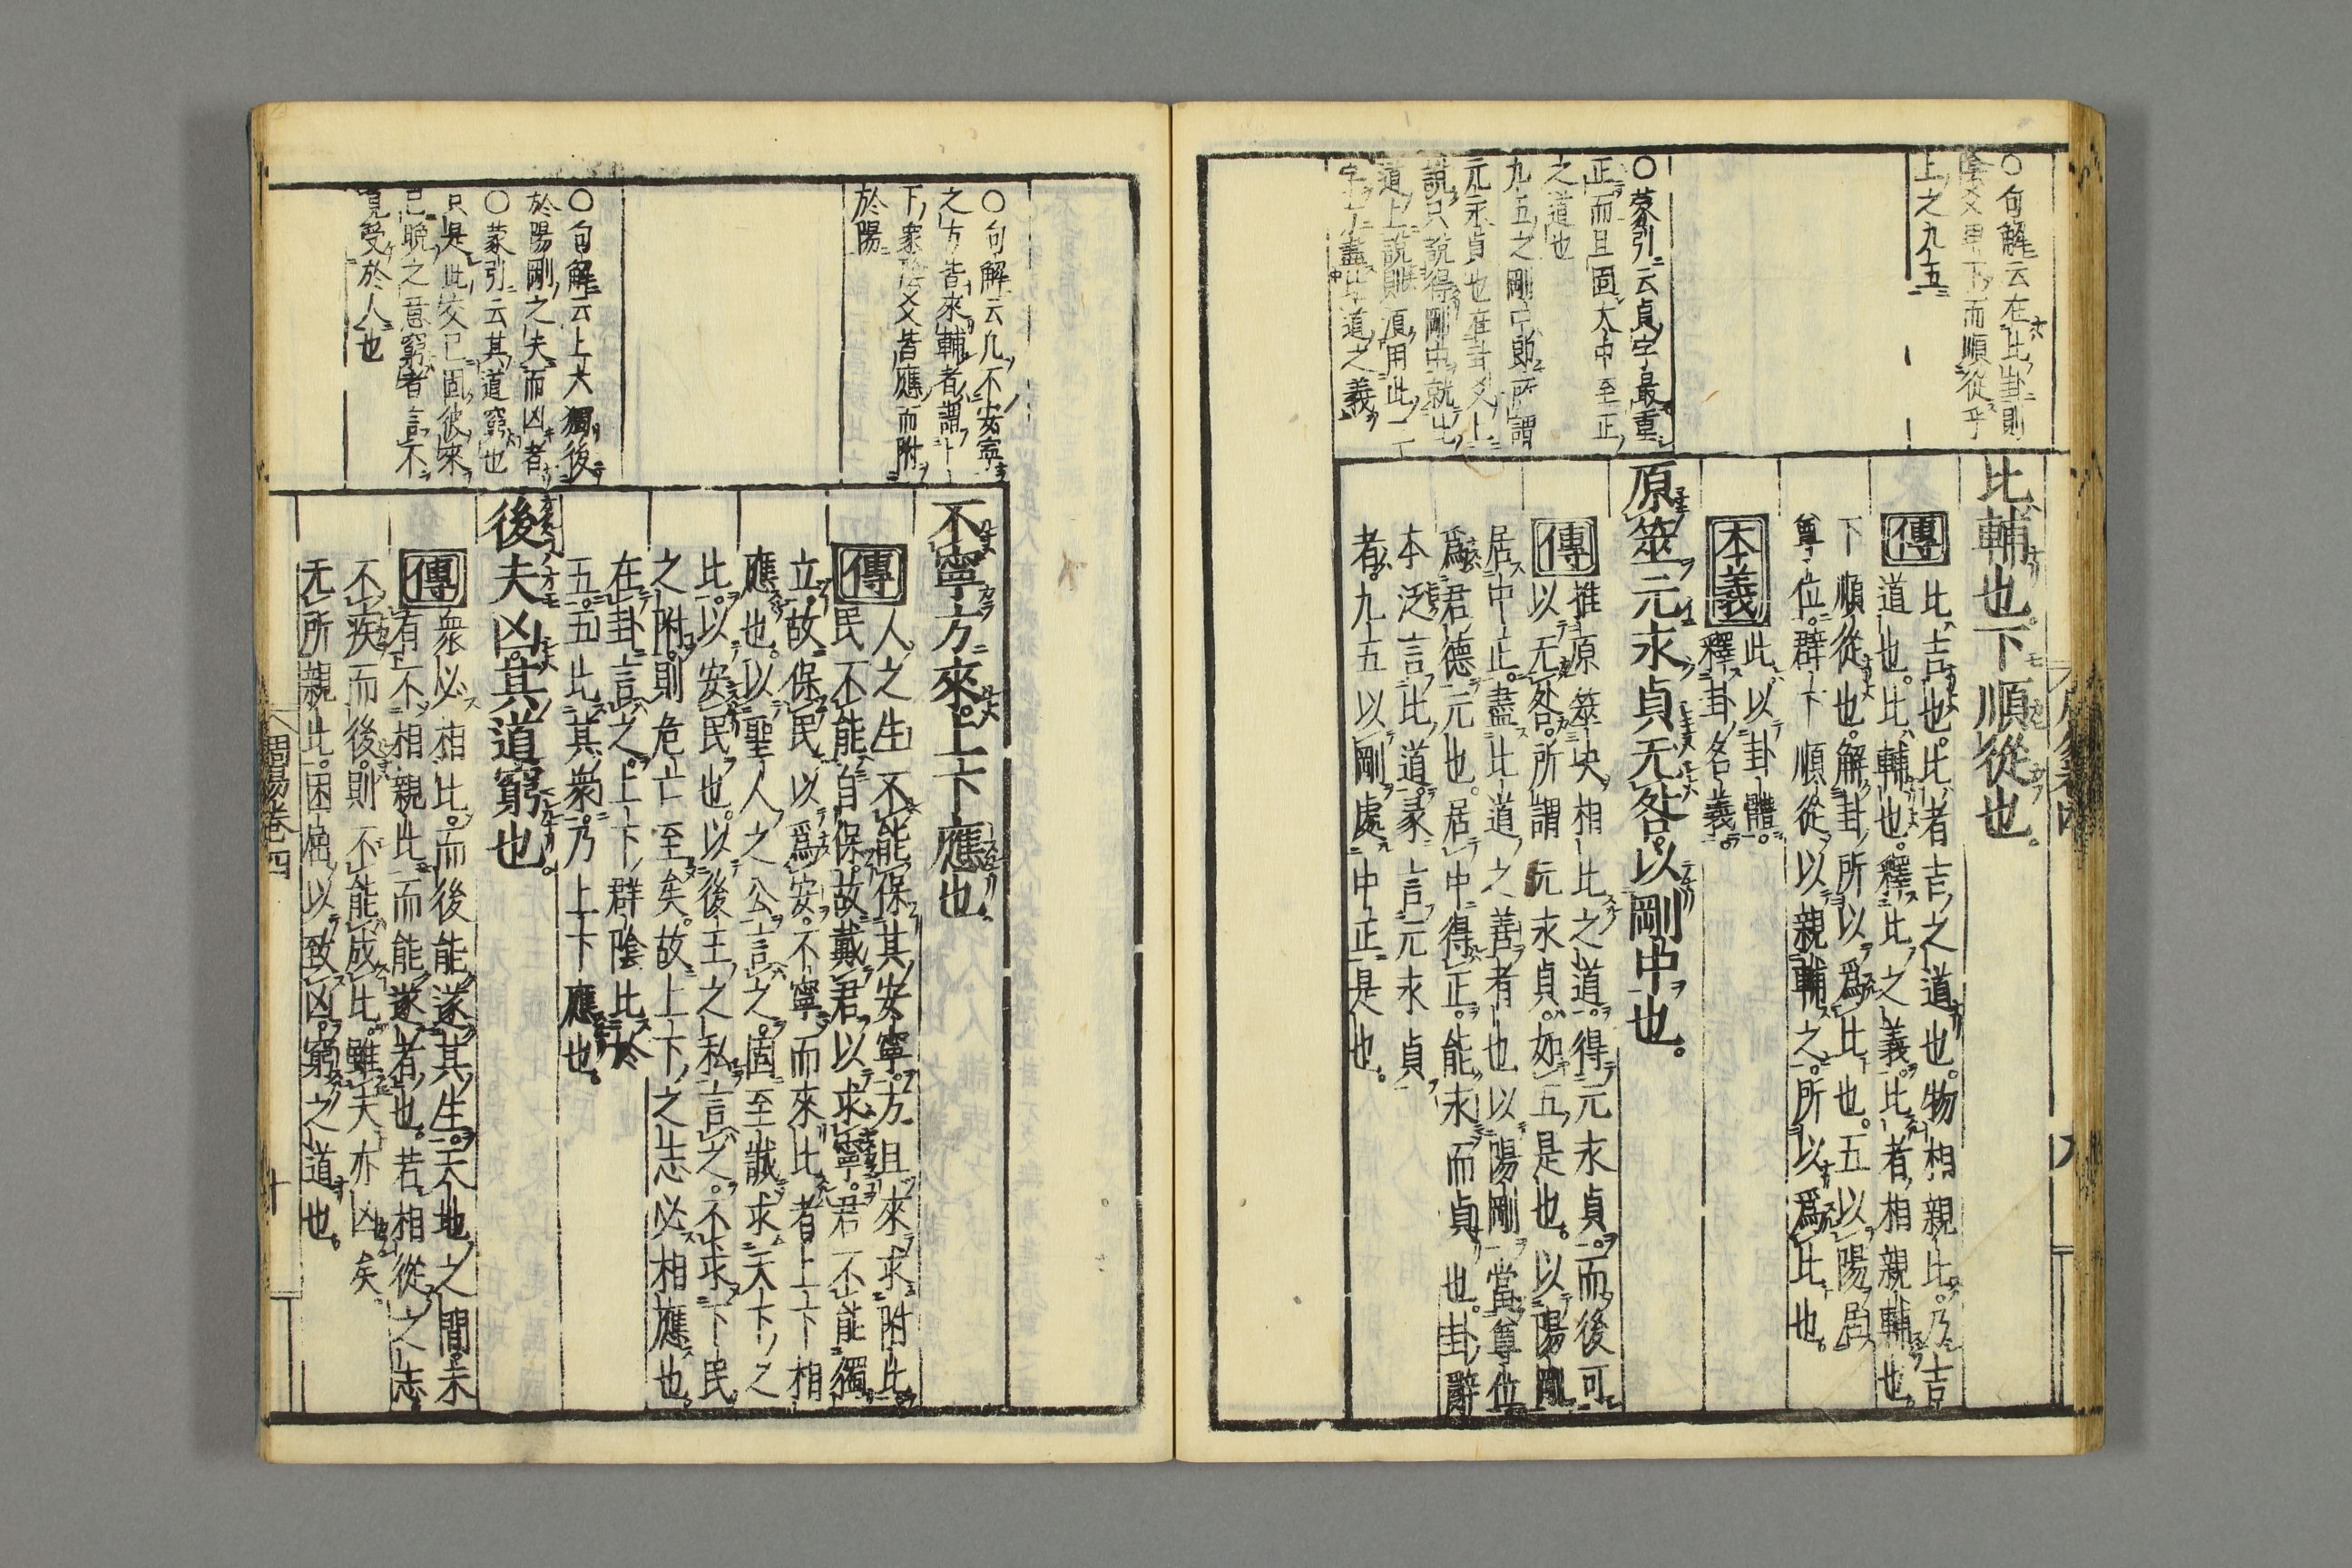 ○句解云在比卦則
陰爻卑下而順從乎
上之九五
比輔也下順從也。
傳
比吉也。比者吉之道也。物相親比。乃吉
道也。比輔也。釋比之義。比者相親輔也。
下順從也。解卦所以爲比也。五以陽居
尊位。群下順從以親輔之。所以爲比也。
本義
此以卦體。
釋卦名義。
○蒙引云貞字最重
正而且固大中至正
之道也
九五之剛中即所謂
元永貞也在卦爻上
說只說得剛中就比
道上說則須用此二
字方盡比道之義
原筮元永貞无咎。以剛中也。
傳
推原筮决相比之道。得元永貞。而後可
以无咎。所謂元永貞。如五是也。以陽剛
居中正。盡比道之善者也以陽剛當尊位
爲君德元也。居中得正。能永而貞也。卦辭
本泛言比道。彖言元永貞
者。九五以剛處中正是也。
周易卷四
九
○句解云凡不安寧
之方皆來輔者謂上
下衆陰爻皆應而附
於陽
不寧方來。上下應也。
傳
人之生不能保其安寧。方且來求附比。
民不能自保。故戴君以求寧。君不能獨
立。故保民以爲安。不寧而來比者上下相
應也。以聖人之公言之。固至誠求天下之
比。以安民也。以後王之私言之。不求下民
之附。則危亡至矣。故上下之志必相應也。
在卦言之。上下群陰比於
五。五比其衆。乃上下應也。
○句解云上六獨後
於陽剛之夫而凶者
○蒙引云其道窮也
只是此交已固彼來
已晩之意窮者言不
見受於人也
後夫凶。其道窮也。
傳
衆必相比。而後能遂其生。天地之間。未
有不相親比而能遂者也。若相從之志
不疾而後。則不能成比。雖夫亦凶矣。
无所親比。困屈以致凶。窮之道也。
周易卷四
十